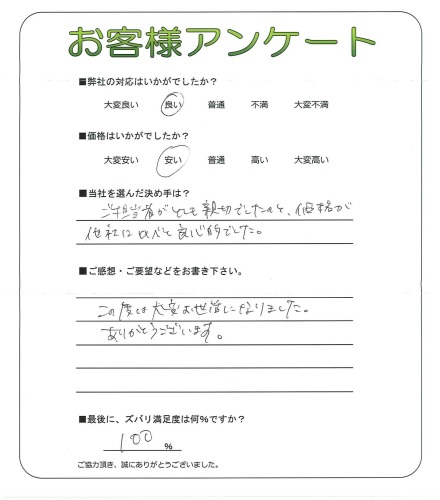 お客様アンケート
■弊社の対応はいかがでしたか?
大変良い 良い 普通 不満 大変不満
■価格はいかがでしたか?
大変安い 安い 普通 高い 大変高い
■当社を選んだ決め手は?
ご担当者がとても親切でしたのと、価格が
他社に比べと良心的でした。
■ご感想・ご要望などをお書き下さい。
この度は大変お世話になりました。
ありがとうございます。
■最後に、ズバリ満足度は何%ですか?
100 %
ご協力頂き、誠にありがとうございました。